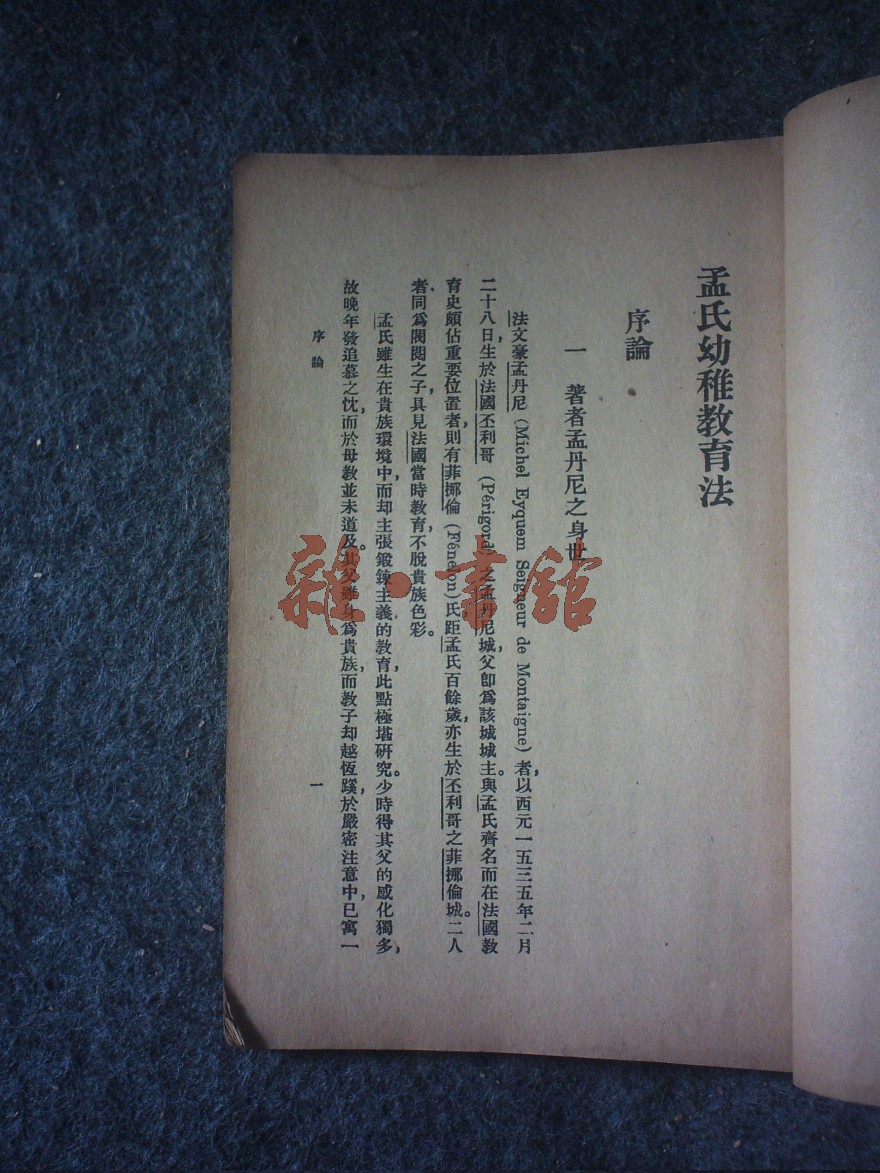 孟氏幼稚教育法
序論
一　著者孟丹尼之身世
法文豪孟丹尼 (Michel Eyquem Seigneur de Montaigne) 者，以西元一五三五年二月
二十八日，生於法國丕利哥 (Périgord) 之孟丹尼城，父即爲該城城主。與孟氏齊名而在法國教
育史頗佔重要位置者，則有菲挪倫 (Fénelon) 氏，距孟氏百餘歲，亦生於丕利哥之菲挪倫城。二人
者，同爲閥閱之子，具見法國當時教育，不脫貴族色彩。
孟氏雖生在貴族環境中，而却主張鍛鍊主義的教育，此點極堪研究。少時得其父的感化獨多，
故晚年發追慕之忱，而於母教並未道及。其父雖身爲貴族，而教子却越恆蹊，於嚴密注意中，已寓一
序論
一
雜·書館